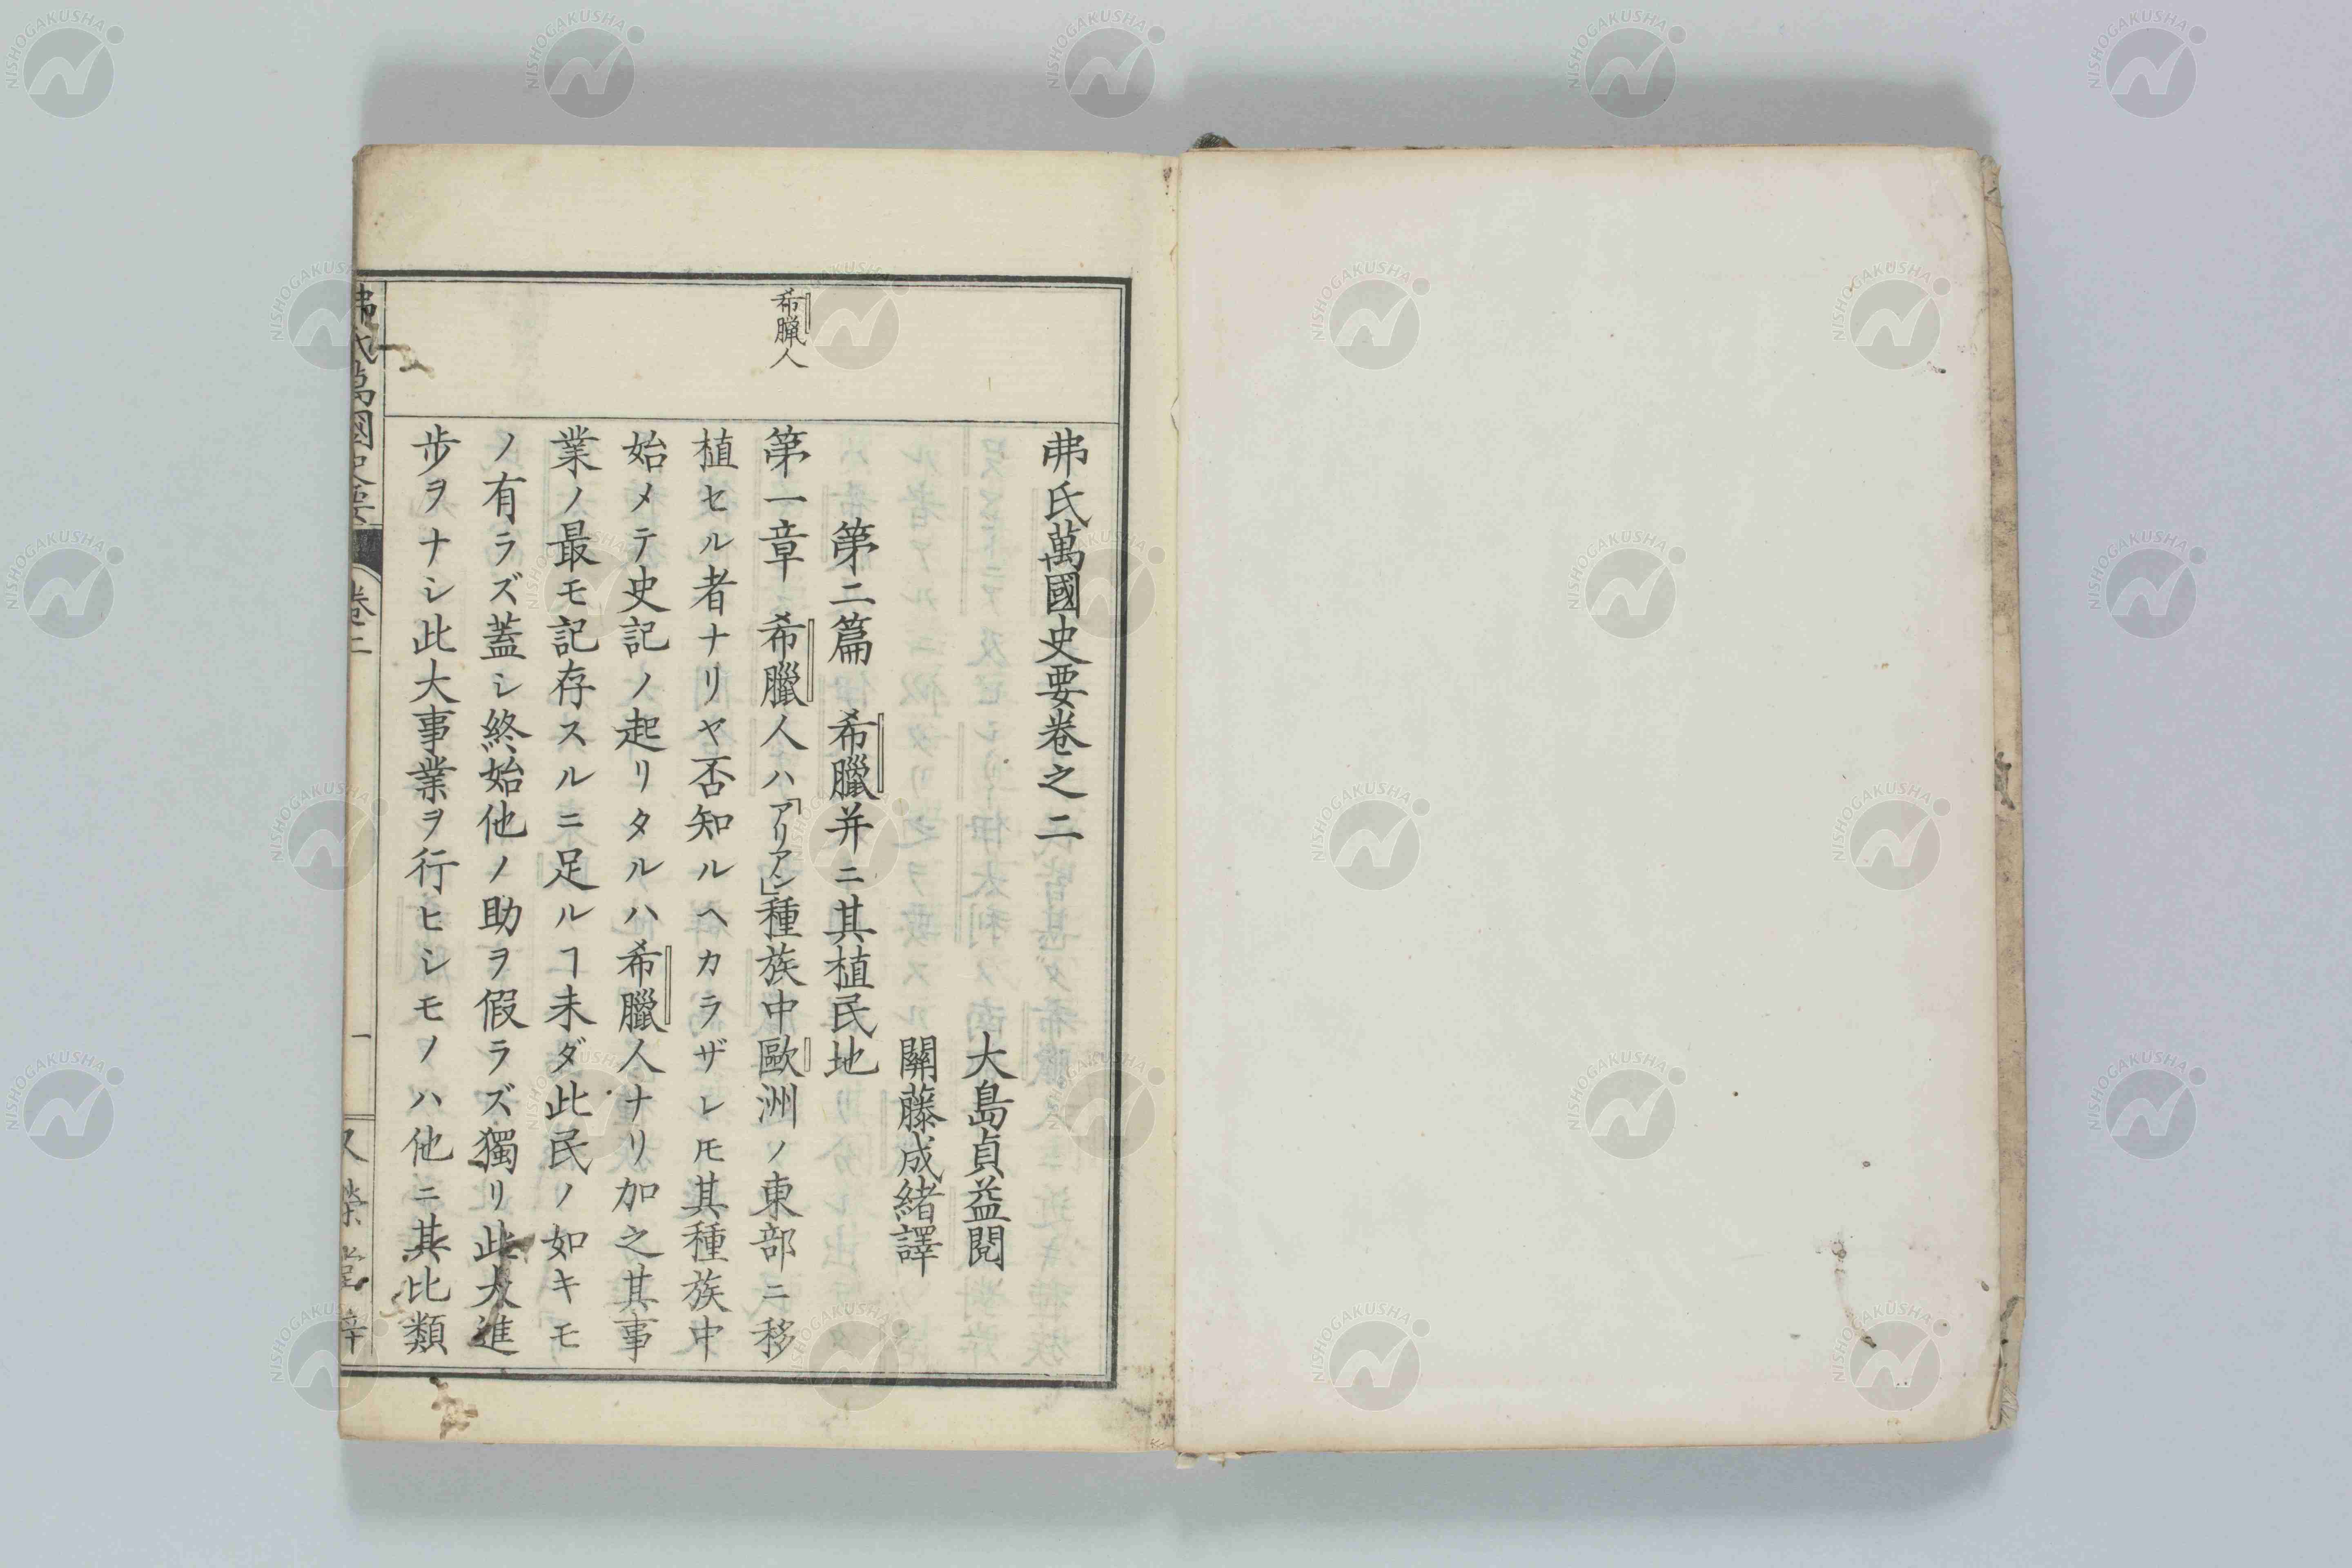 弗氏萬國史要卷之二
大島貞益閲
關藤成緒譯
第二篇 希臘并ニ其植民地
希臘人
第一章 希臘人ハ「アリアン」種族中歐洲ノ東部ニ移
植セル者ナリヤ否知ルヘカラザレ𪜈其種族中
始メテ史記ノ起リタルハ希臘人ナリ加之其事
業ノ最モ記存スルニ足ルヿ未ダ此民ノ如キモ
ノ有ラズ蓋シ終始他ノ助ヲ假ラズ獨リ此大進
歩ヲナシ此大事業ヲ行ヒシモノハ他ニ其比類
弗氏萬國史要 卷二 一
NISHOGAKUSHA